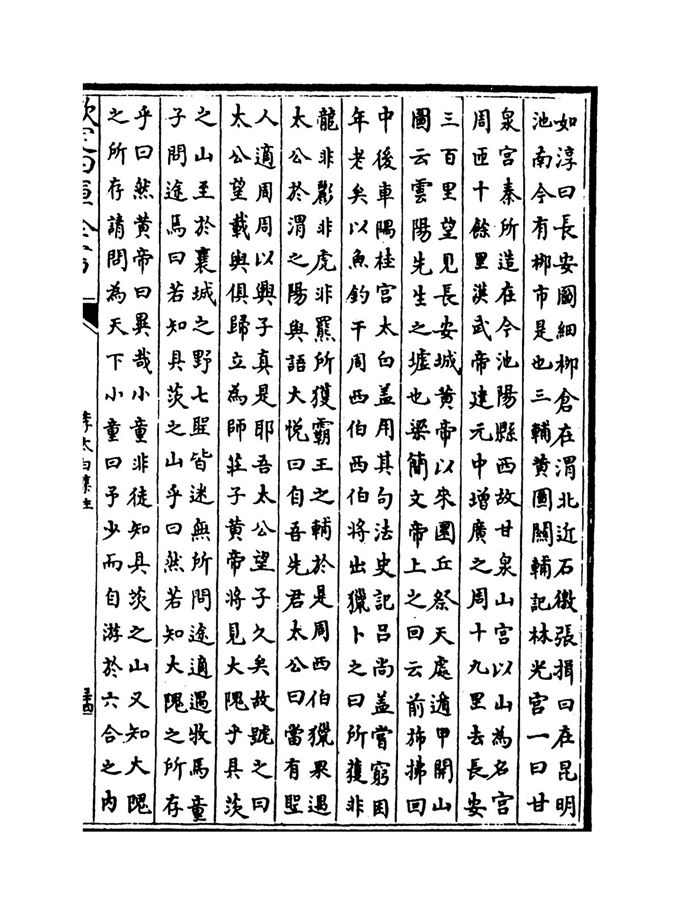 如淳曰長安圖細柳倉在渭北近石徼張揖曰在昆明
池南今有柳市是也三輔黃圖關輔記林光宮一曰甘
泉宮秦所造在今池陽縣西故甘泉山宮以山為名宮
周匝十餘里漢武帝建元中增廣之周十九里去長安
三百里望見長安城黃帝以來圜丘祭天處遁甲開山
圖云雲陽先生之墟也梁簡文帝上之回云前斾拂回
中後車隅桂宮太白蓋用其句法史記呂尚蓋嘗窮困
年老矣以魚釣干周西伯西伯將出獵卜之曰所獲非
龍非彲非虎非羆所獲霸王之輔於是周西伯獵果遇
太公於渭之陽與語大悅曰自吾先君太公曰當有聖
人適周周以興子真是耶吾太公望子久矣故號之曰
太公望載與俱歸立為師莊子黃帝將見大隗乎具茨
之山至於襄城之野七聖皆迷無所問途適遇牧馬童
子問途焉曰若知具茨之山乎曰然若知大隗之所存
乎曰然黃帝曰異哉小童非徒知具茨之山又知大隗
之所存請問為天下小童曰予少而自游於六合之內
欽定四庫全書
李太白集注